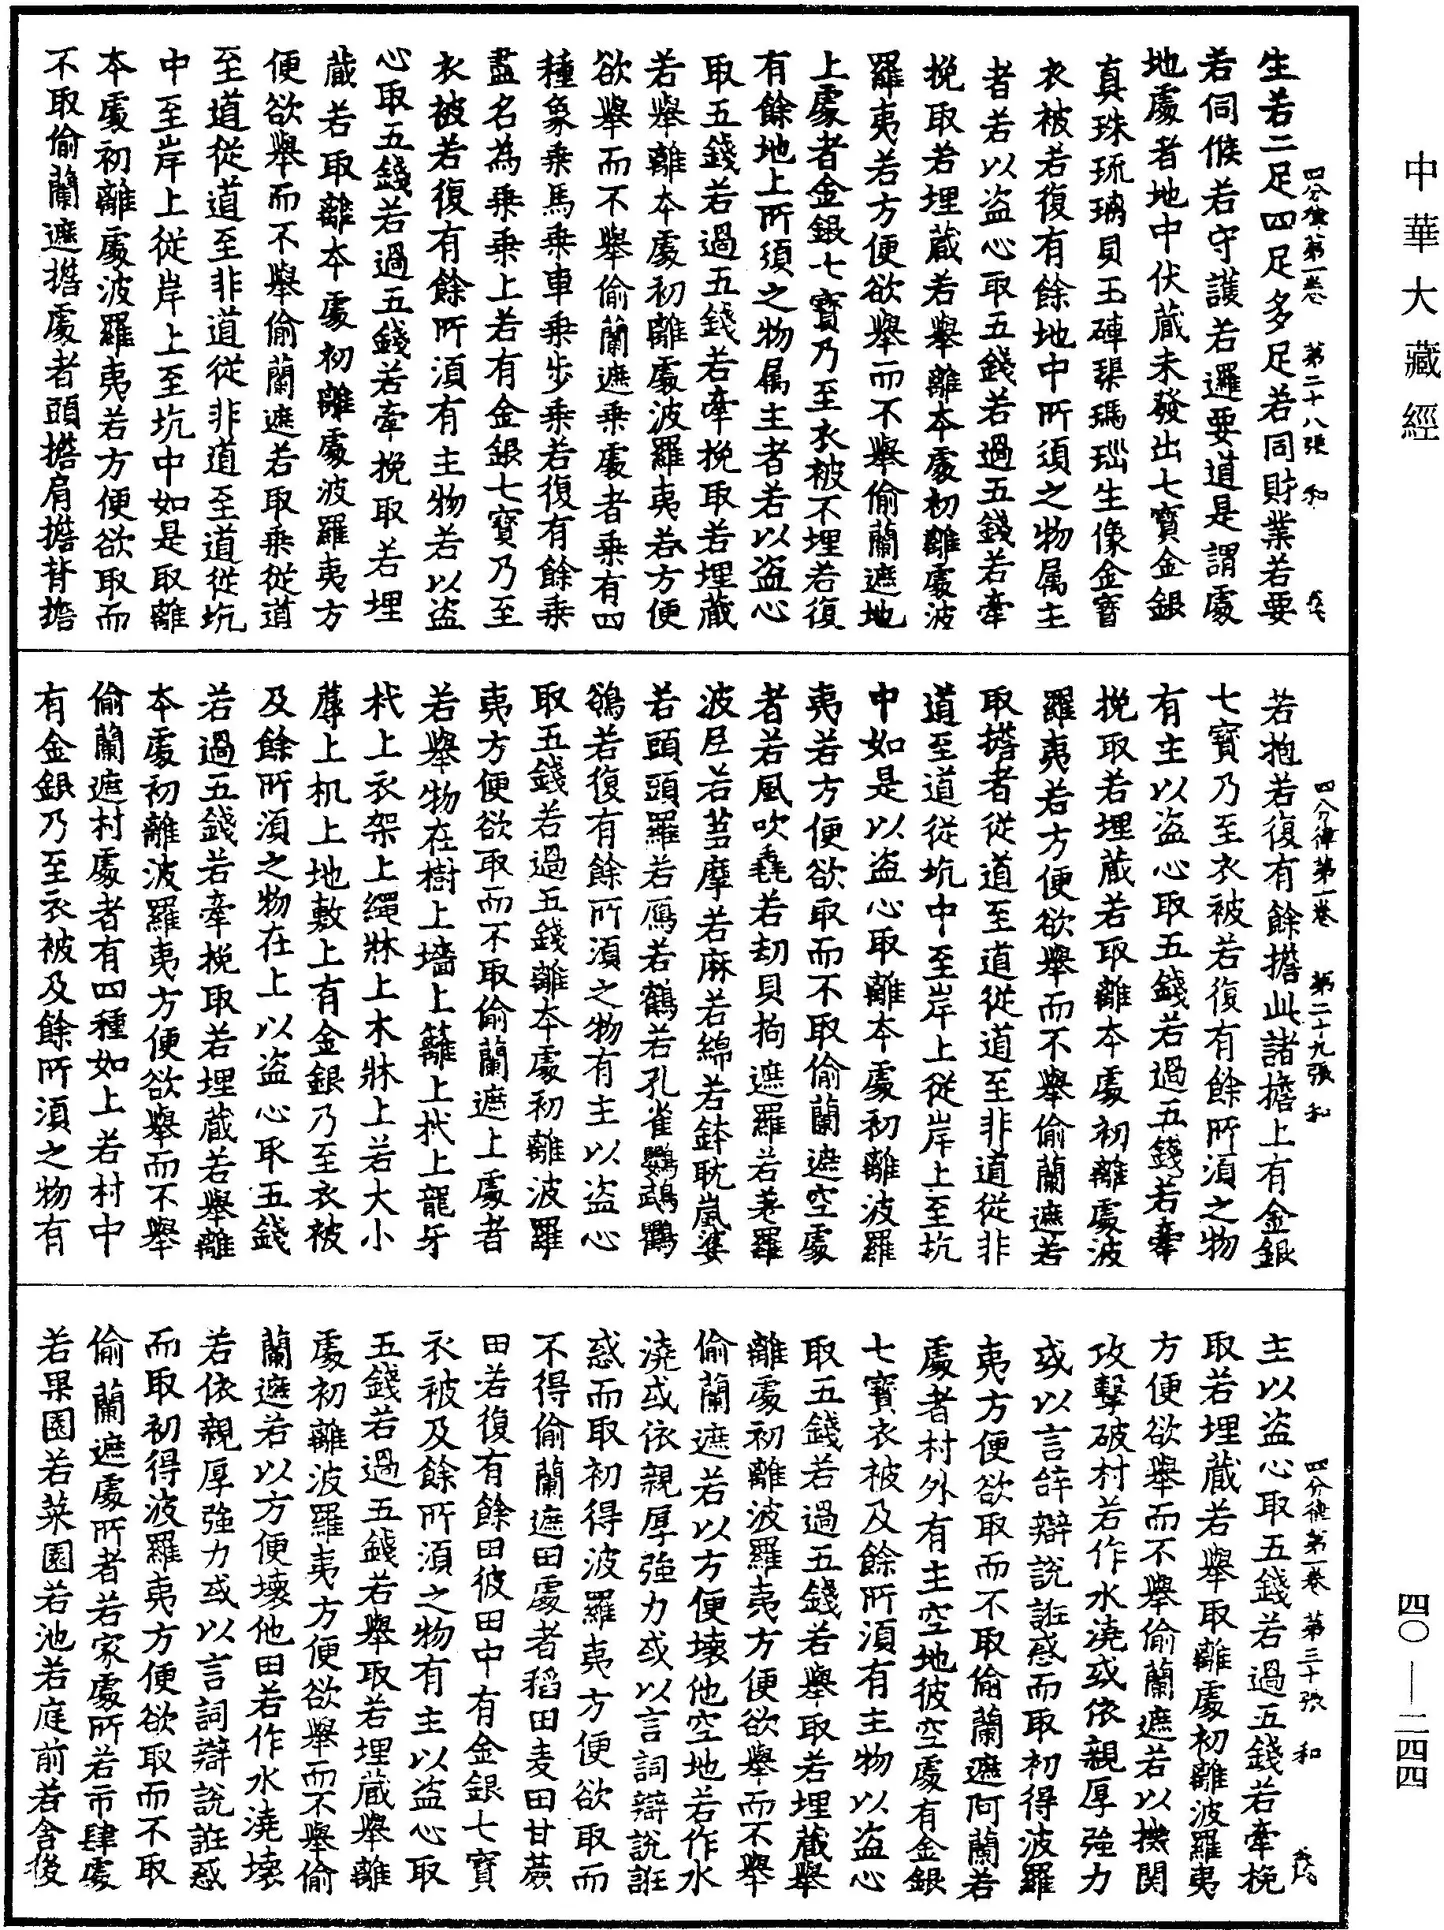 中華大藏經
四〇—二四四
生若二足四足多足若同財業若要
四分律第一卷 第二十八張 和
若伺候若守護若邏要道是謂處
地處者地中伏藏未發出七寶金銀
真珠琉璃貝玉硨磲瑪瑙生像金寶
衣被若復有餘地中所須之物属主
者若以盜心取五錢若過五錢若牽
挽取若埋藏若舉離本處初離處波
羅夷若方便欲舉而不舉偷蘭遮地
上處者金銀七寶乃至衣被不埋若復
有餘地上所須之物属主者若以盜心
取五錢若過五錢若牽挽取若埋藏
若舉離本處初離處波羅夷若方便
欲舉而不舉偷蘭遮乘處者乘有四
種象乘馬乘車乘步乘若復有餘乘
盡名為乘乘上若有金銀七寶乃至
衣被若復有餘所須有主物若以盜
心取五錢若過五錢若牽挽取若埋
藏若取離本處初離處波羅夷方
便欲舉而不舉偷蘭遮若取乘從道
至道從道至非道從非道至道從坑
中至岸上從岸上至坑中如是取離
本處初離處波羅夷若方便欲取而
不取偷蘭遮擔處者頭擔肩擔背擔
若抱若復有餘擔此諸擔上有金銀
四分律第一卷 第二十九張 和
七寶乃至衣被若復有餘所須之物
有主以盜心取五錢若過五錢若牽
挽取若埋藏若取離本處初離處波
羅夷若方便欲舉而不舉偷蘭遮若
取擔者從道至道從道至非道從非
道至道從坑中至岸上從岸上至坑
中如是以盜心取離本處初離波羅
夷若方便欲取而不取偷蘭遮空處
者若風吹毳若劫貝拘遮羅若差羅
波尼若芻摩若麻若綿若鉢耽嵐婆
若頭頭羅若鴈若鶴若孔雀鸚鵡鸜
鵒若復有餘所須之物有主以盜心
取五錢若過五錢離本處初離波羅
夷方便欲取而不取偷蘭遮上處者
若舉物在樹上墻上籬上杙上龍牙
杙上衣架上繩牀上木牀上若大小
蓐上机上地敷上有金銀乃至衣被
及餘所須之物在上以盜心取五錢
若過五錢若牽挽取若埋藏若舉離
本處初離波羅夷方便欲舉而不舉
偷蘭遮村處者有四種如上若村中
有金銀乃至衣被及餘所須之物有
主以盜心取五錢若過五錢若牽挽
四分律第一卷 第三十張 和
取若埋藏若舉取離處初離波羅夷
方便欲舉而不舉偷蘭遮若以機関
攻擊破村若作水澆或依親厚強力
或以言辞辯說誑惑而取初得波羅
夷方便欲取而不取偷蘭遮阿蘭若
處者村外有主空地彼空處有金銀
七寶衣被及餘所須有主物以盜心
取五錢若過五錢若舉取若埋藏舉
離處初離波羅夷方便欲舉而不舉
偷蘭遮若以方便壞他空地若作水
澆或依親厚強力或以言詞辯說誑
惑而取初得波羅夷方便欲取而
不得偷蘭遮田處者稻田麦田甘蔗
田若復有餘田彼田中有金銀七寶
衣被及餘所須之物有主以盜心取
五錢若過五錢若舉取若埋藏舉離
處初離波羅夷方便欲舉而不舉偷
蘭遮若以方便壞他田若作水澆壞
若依親厚強力或以言詞辯說誑惑
而取初得波羅夷方便欲取而不取
偷蘭遮處所者若家處所若市肆處
若果園若菜園若池若庭前若舍後